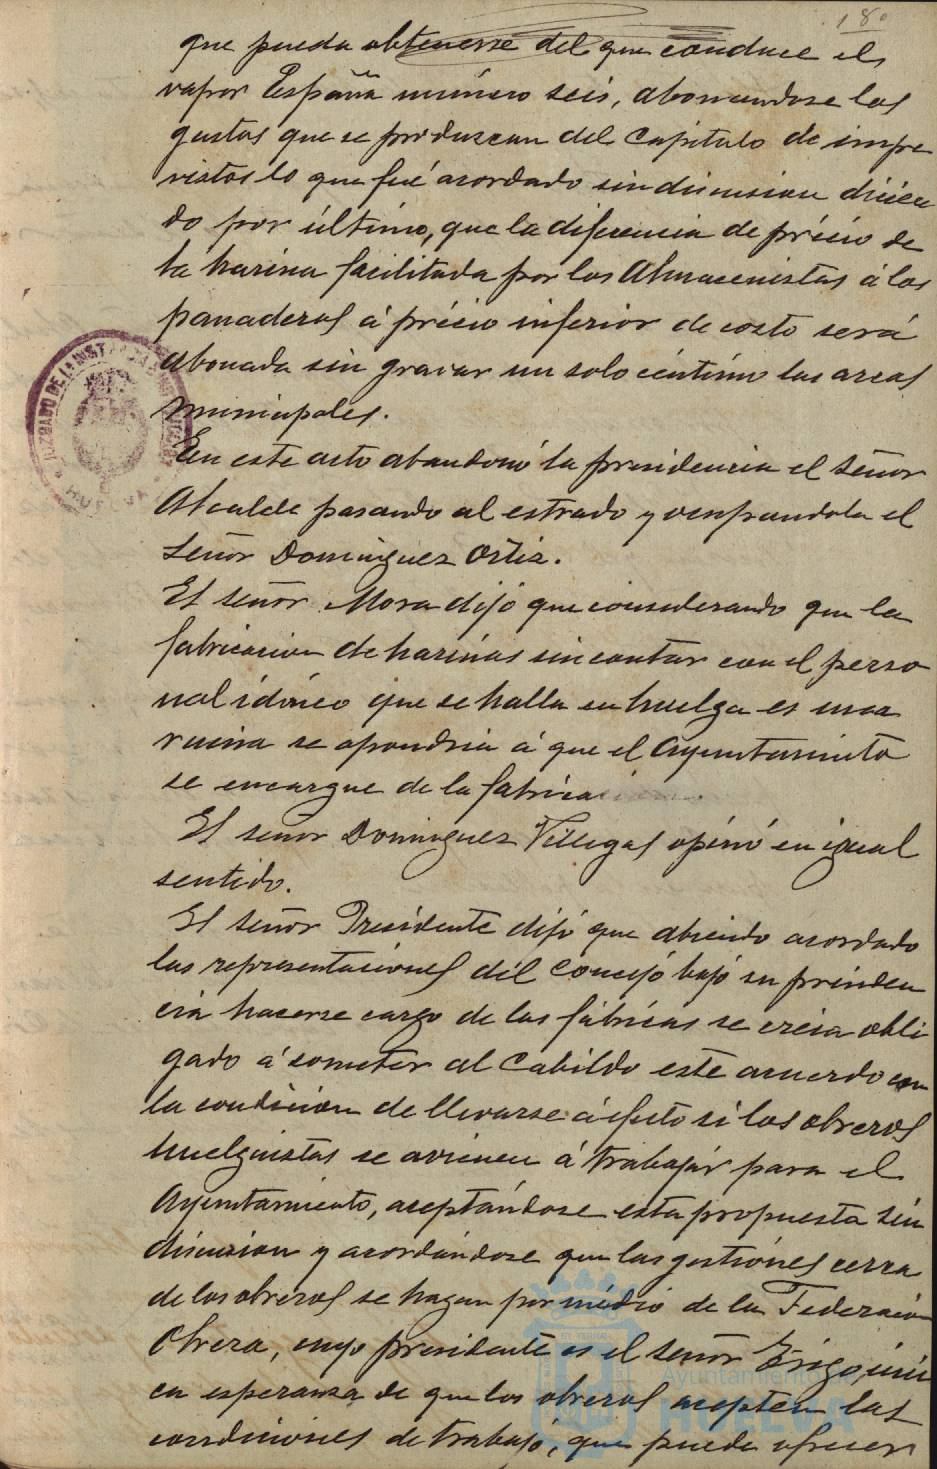 180
que pueda obtenerse del que conduce el
vapor España número seis, abonandose los
gastos que se produzcan del Capítulo de impre
vistos lo que fué acordado sin discusion dicien
do por último, que la diferencia de précio de
la harina facilitada por los Almacenistas á los
panaderos á précio inferior de costo será
abonada sin gravar un solo céntimo las arcas
municipales.
En este acto abandonó la presidencia el señor
Alcalde pasando al estrado y ocupandola el
Señor Dominguez Ortiz.
El señor Mora dijo que considerando que la
fabricacion de harinas sin contar con el perso
nal idóneo que se halla en huelga es una
ruina se opondria á que el Ayuntamiento
se encargue de la fábrica
El señor Dominguez Villegas opinó en igual
sentido.
El señor Presidente dijo que abiendo acordado
las representaciones del Concejo bajo su presiden
cia hacerse cargo de las fábricas se creia obli
gado á someter al Cabildo este acuerdo con
la condicion de llevarse á efecto si los obreros
huelguistas se avienen á trabajar para el
Ayuntamiento, aceptándose esta propuesta sin
discusion y acordándose que las gestiones cerca
de los obreros se hagan por médio de la Federación
Obrera, cuyo presidente es el señor Trigo, úni
ca esperanza de que los obreros acepten las
condiciones de trabajo, que puede ofrecer
JUZGADO DE 1ª INSTANCIA
HUELVA
Ayuntamiento
HUELVA